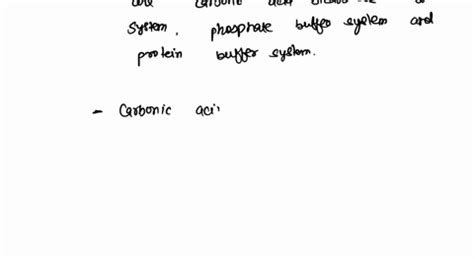 carbonic acid
system, phosphate buffer system and
protein buffer system.
- Carbonic aci